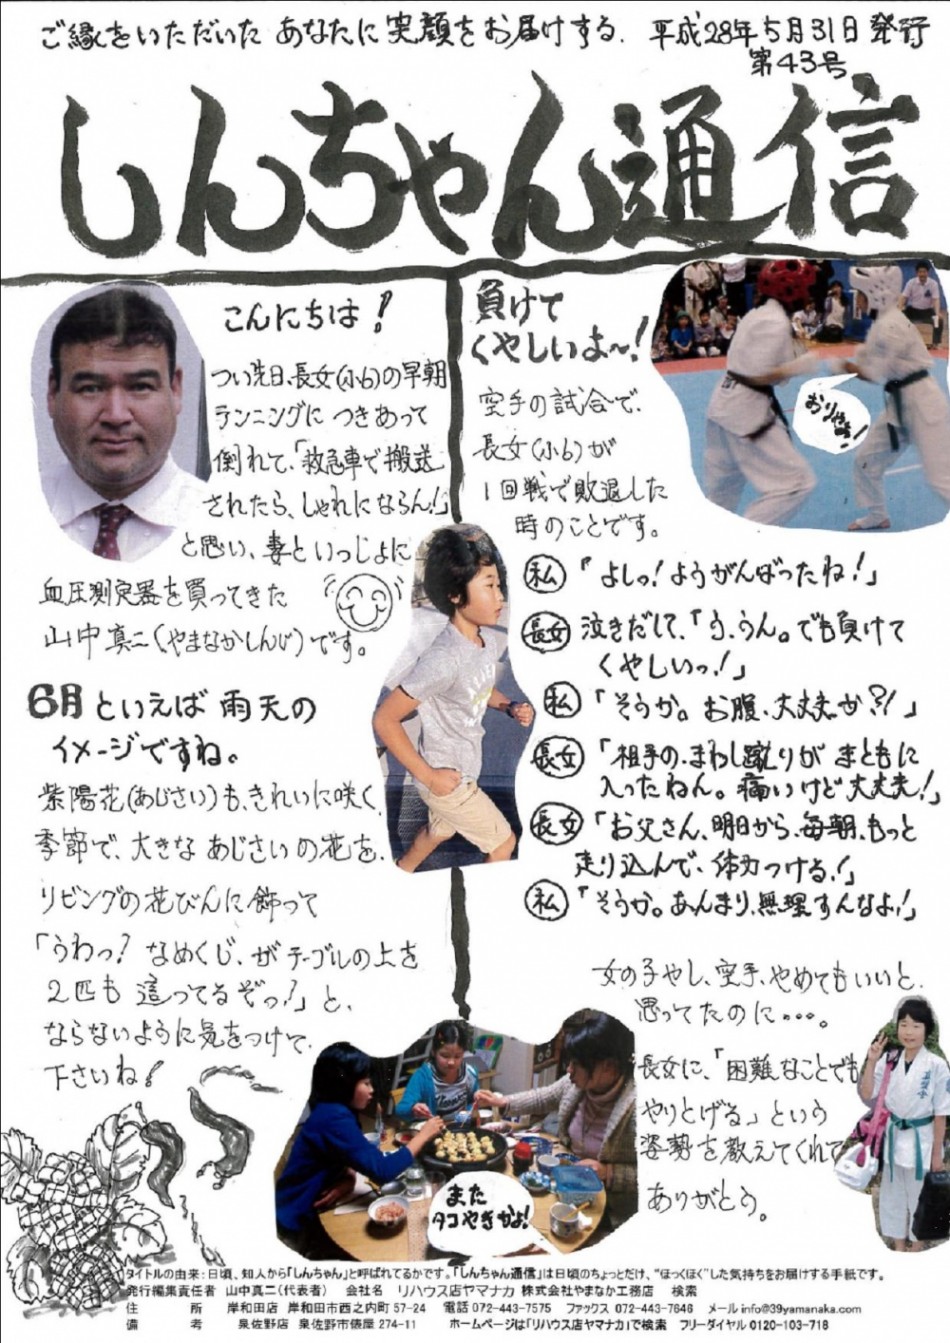 ご縁をいただいた あなたに 笑顔をお届けする. 平成28年5月31日 発行
第43号
しんちゃん通信
こんにちは!
つい先日、長女(小6)の早朝
ランニングに つきあって
倒れて、「救急車で搬送
されたら、しゃれにならん!」
と思い、妻といっしょに
血圧測定器を買ってきた
山中真二(やまなかしんじ)です。
6月といえば 雨天の
イメージですね。
紫陽花(あじさい)も、きれいに咲く、
季節で、大きな あじさいの花を、
リビングの花びんに飾って
「うわっ? なめくじ、がテーブルの上を
2匹も 這ってるぞっ!」と、
ならないように気をつけて、
下さいね!
負けて
くやしいよ〜!
空手の試合で、
長女(小6)が
1回戦で敗退した
時のことです。
おりゃあ!
私 「よしっ!ようがんばったね!」
長女 泣きだして、「う、うん。でも負けて
くやしいっ!」
私 「そうか。お腹、大丈夫か?!」
長女 「組手の、まわし蹴りが まともに
入ったねん。痛いけど大丈夫!」
長女 「お父さん、明日から、毎朝、もっと
走り込んで、体力つける!」
私 「そうか。あんまり、無理すんなよ!」
女の子やし、空手、やめてもいいと、
思ってたのに・・・。
長女に、「困難なことでも
やりとげる」という
姿勢を教えてくれて
ありがとう。
また
タコやきかよ!
タイトルの由来:日頃、知人から「しんちゃん」と呼ばれてるからです。「しんちゃん通信」は日頃のちょっとだけ、“ほっくほく”した気持ちをお届けする手紙です。
発行編集責任者 山中真二(代表者) 会社名 リハウス店ヤマナカ 株式会社やまなか工務店 検索
住 所 岸和田店 岸和田市西之内町 57-24 電話 072-443-7575 ファックス 072-443-7646 メール info@39yamanaka.com
備 考 泉佐野店 泉佐野市俵屋 274-11 ホームページは「リハウス店ヤマナカ」で検索 フリーダイヤル 0120-103-718